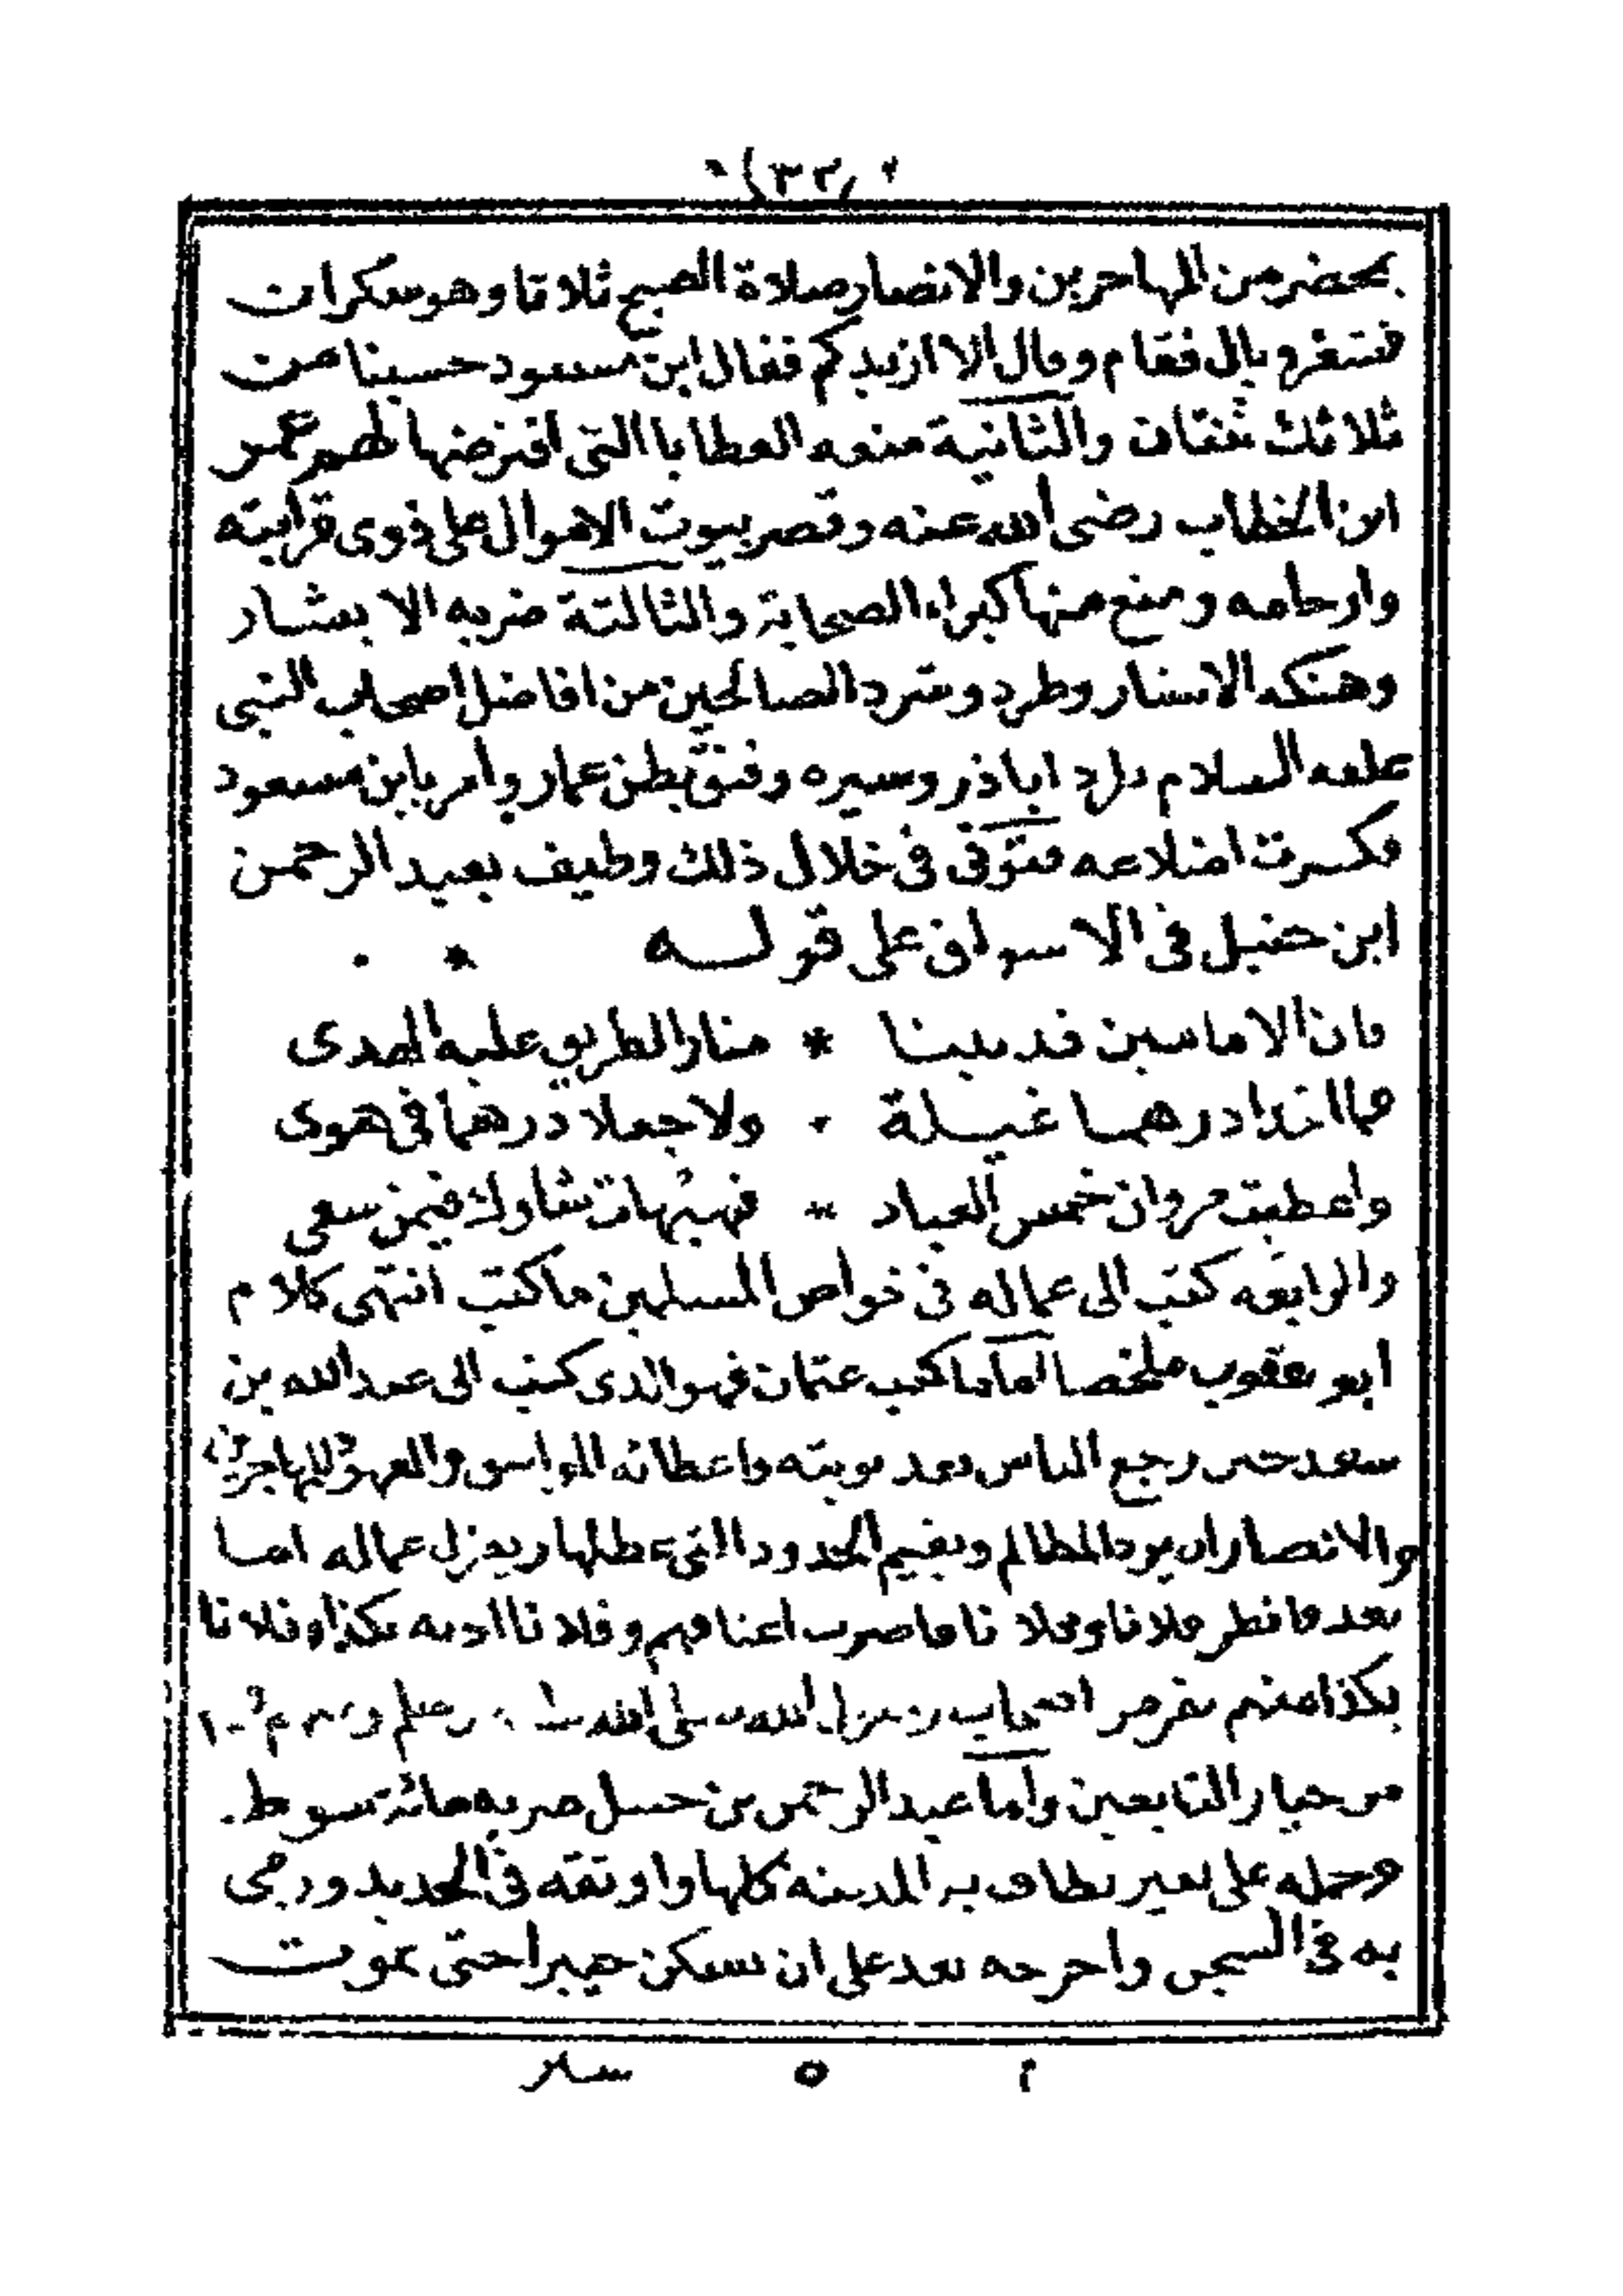 (٣٣)
بحضر من المهاجرين والانصار صلاة الصبح ثلاثا وهو سكران
فقام وقال الا ازيدكم فقال ابن مسعود حسبنا من
ثلاثك ثنتان والثانية منعه العطايا التي افترضها لهم عمر
ابن الخطاب رضى الله عنه وقصر بيوت الاموال على ذوى قرابته
وارحامه ومنع منها كبراء الصحابة والثالثة ضربه الابشار
وهتكه الاستار وطرد وشرد الصالحين من افاضل اصحاب النبى
عليه السلام طرد اباذر وسيره وفتق بطن عمار وامر بابن مسعود
فكسرت اضلاعه فتوفى فى خلال ذلك وطيف بعبد الرحمن
ابن حنبل فى الاسواق على قوله *
فان الامامين قد بينا * منار الطريق عليه الهدى
فما اخذا درهما غيلة * ولا جعلا درهما فى هوى
واعطيت مروان خمس العباد * فهيهات شاوك فيمن سعى
والرابعه كتب الى عماله فى خواص المسلمين ما كتب انتهى كلام
ابو يعقوب ملخصا اما ما كتب عثمان فهو الذى كتب الى عبد الله بن
سعد حين رجع الناس بعد توبته واعطائه المواسق والعهود للمهاجرين
والانصار ان يرد المظالم ويقيم الحدود التى عطلها ويعزل عماله اما
بعد فانظر فلانا وفلانا فاضرب اعناقهم وفلانا ادبه بكذا وفلانا
بكذا منهم نفر من اصحاب رسول الله صلى الله عليه وسلم ومنهم
من خيار التابعين واما عبد الرحمن بن حنبل ضربه مائة سوط
وحمله على بعير يطاف به المدينه كلها واوثقه فى الحديد ورمى
به فى السجن واخرجه بعد على ان يسكن خيبرا حتى يموت
م ٥ سير